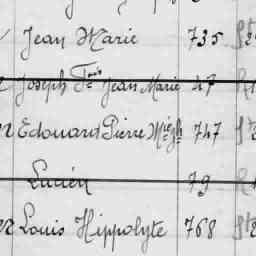 Jean Marie 735 St
Joseph Fçois Jean Marie 47
Edouard Pierre Mie Jh 747 St
Lucien 79
Louis Hippolyte 768 St